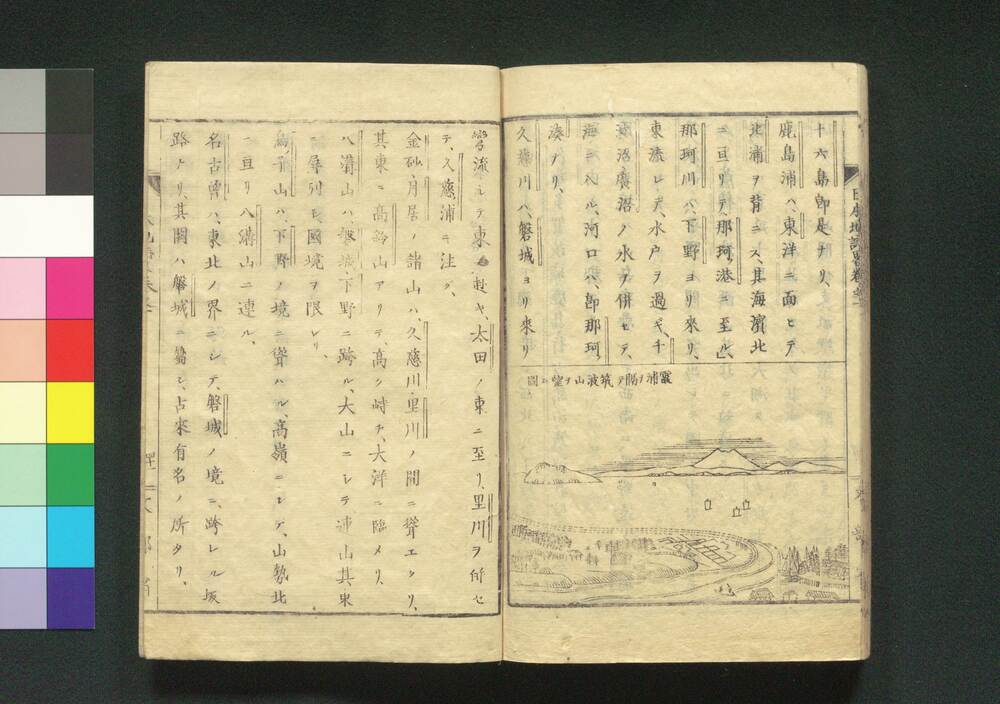 十六島卽是ナリ、
鹿島浦ハ、東洋ニ面シテ
北浦ヲ背ニス、其海濱北
ニ亘リテ、那珂港ニ至ル、
那珂川ハ、下野ヨリ來リ、
東流シテ、水戸ヲ過ギ、千
波沼廣沼ノ水ヲ併セテ、
海ニ入ル、河口ハ、卽那珂
湊ナリ、
久慈川ハ、磐城ヨリ來リ
霞浦ヲ隔テ筑波山ヲ望ム圖
流シテ東ニ赴キ、太田ノ東ニ至リ、里川ヲ併セ
テ、久慈浦ニ注グ、
金砂、月居ノ諸山ハ、久慈川、里川ノ間ニ聳エタリ、
其東ニ高鈴山アリテ、高ク峙チ、大洋ニ臨メリ、
八溝山ハ磐城、下野ニ跨ル、大山ニシテ連山其東
ニ屏列シ國境ヲ限レリ、
鳥子山ハ、下野ノ境ニ聳ハル、高嶺ニシテ、山勢北
ニ亘リ八溝山ニ連ル、
名古曾ハ、東北ノ界ニシテ、磐城ノ境ニ跨レル坂
路ナリ、其關ハ磐城ニ屬シ、古來有名ノ所タリ、